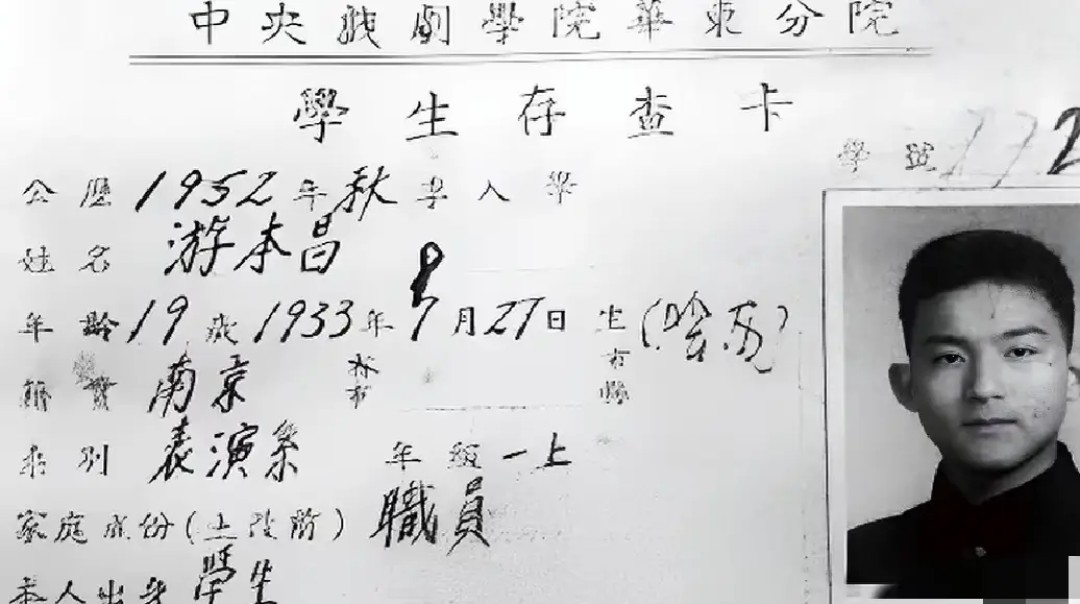 中央戲劇學院華東分院
學生存查卡
學號
公歷1952年秋季入學
姓名 游本昌
年齡19歲1933年 月27日生(陰历)
籍貫 南京 市 市縣
系別 表演系 年級一上
家庭成份(土改前) 職員
本人出身 學生